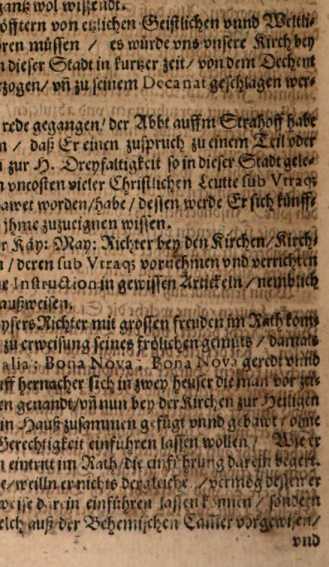 gantz wol wissendt.
öfftern von etzlichen Geistlichen vnnd Weltli-
ören müssen / es würde vns vnsere Kirch bey
n dieser Stadt in kurtzer zeit / von dem Dechent
zogen / vñ zu seinem Decanat geschlagen wer-
rede gegangen / der Abbt auffm Strahoff habe
n / daß Er einen zuspruch zu einem Teil oder
zur H. Dreyfaltigkeit so in dieser Stadt gele-
vncosten vieler Christlichen Leutte sub Vtraq;
awet worden / habe / dessen werde Er sich künff-
ihme zuzueignen wissen.
r Käy: May: Richter bey den Kirchen / Kirch-
n / deren sub Vtraq; vornehmen vnd verrichten
e Instruction in gewissen Artickeln / nemblich
außweisen.
ysers Richter mit grossen freuden im Rath kom-
zu erweisung seines frölichen gemüts / damals
alia: Bona Nova, Bona Nova geredt vnnd
uff hernacher sich in zwey heuser die man vor zei-
en genandt / vñ nun bey der Kirchen zur Heiligen
in Hauß zusammen gefügt vnnd gebawt / ohne
Gerechtigkeit einführen lassen wollen / Wie er
n eintrit im Rath / die einführung darein begert.
e / weilln er nichts dergleiche / vermög dessen er
weise darein einführen lassen können / sondern
elch auß der Behemischen Camer vorgewisen /
vnd